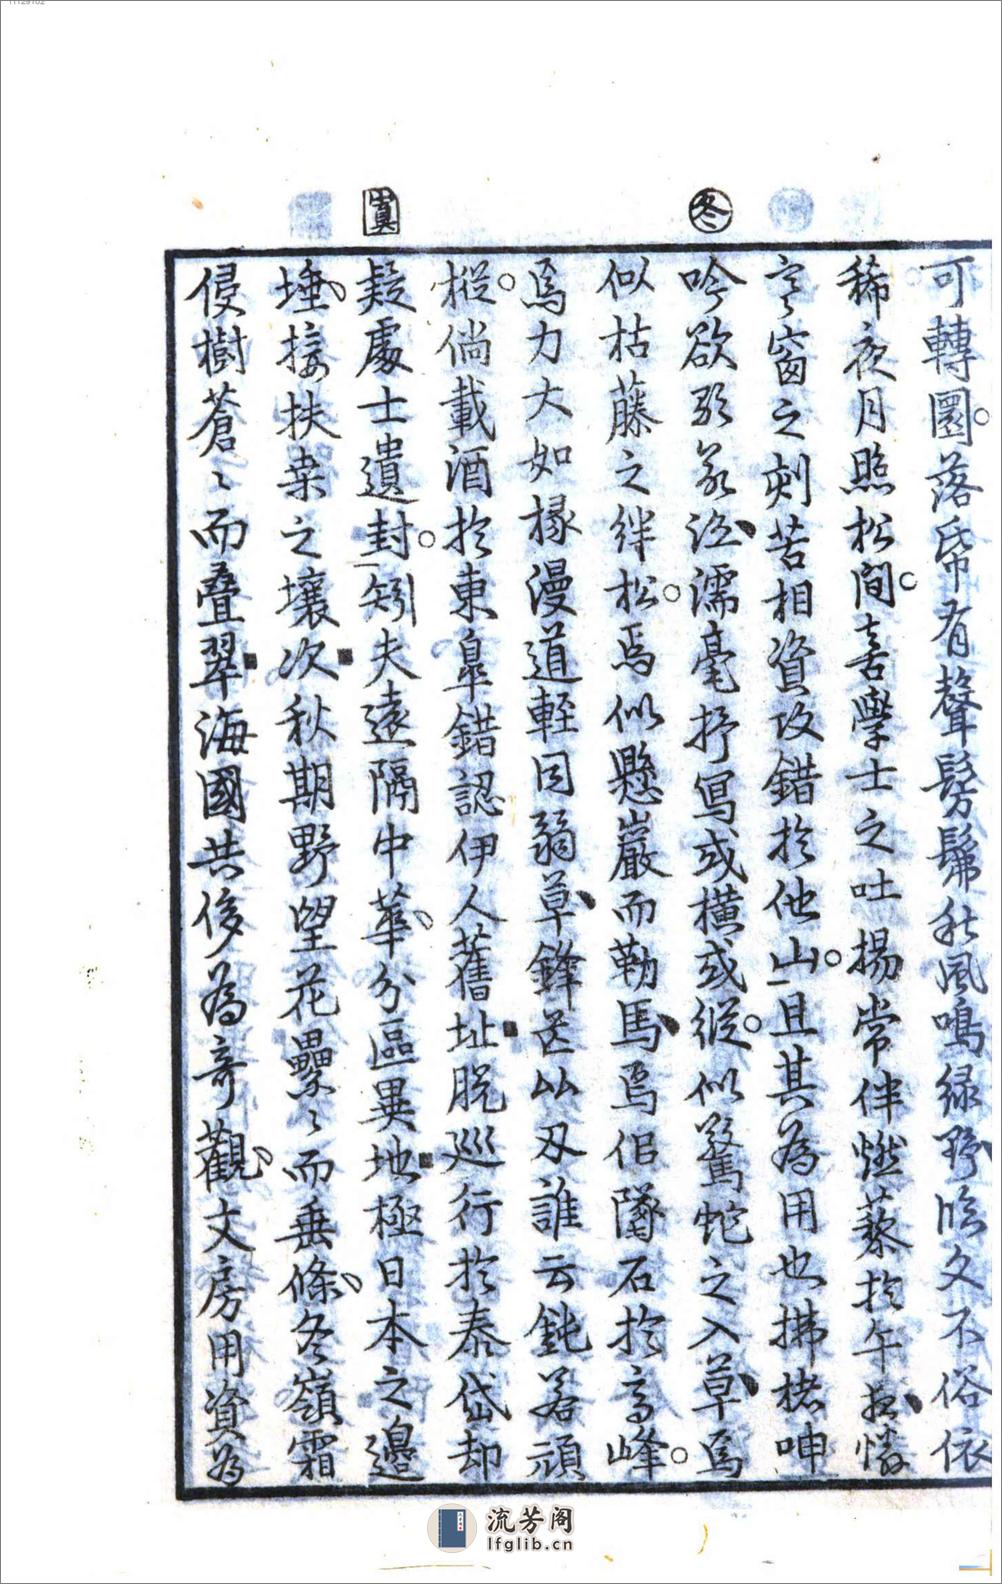 11129102
冬
寘
可轉圜落帋有聲髣髴秋風鳴緑野臨文不俗依
稀夜月照松間喜學士之吐揚常伴燃藜於午夜憐
寒窗之刻苦相資攻錯於他山且其為用也拂楮呻
吟欲弱濡毫抒寫或橫或縱似驚蛇之入草焉
似枯藤之絆松焉似懸巖而勒馬焉佀隊石於高峰
焉力大如椽漫道輕因弱草鋒芒从刃誰云鈍若頑
樅倘載酒於東皐錯認伊人舊址脫巡行於泰岱却
疑處士遺封矧夫遠隔中華分區異地極日本之邉
埵接扶桒之壤次秋期野望花纍〻而垂條冬嶺霜
侵樹蒼〻而疊翠海國共侈為竒觀文房用資為
流芳阁
lfglib.cn